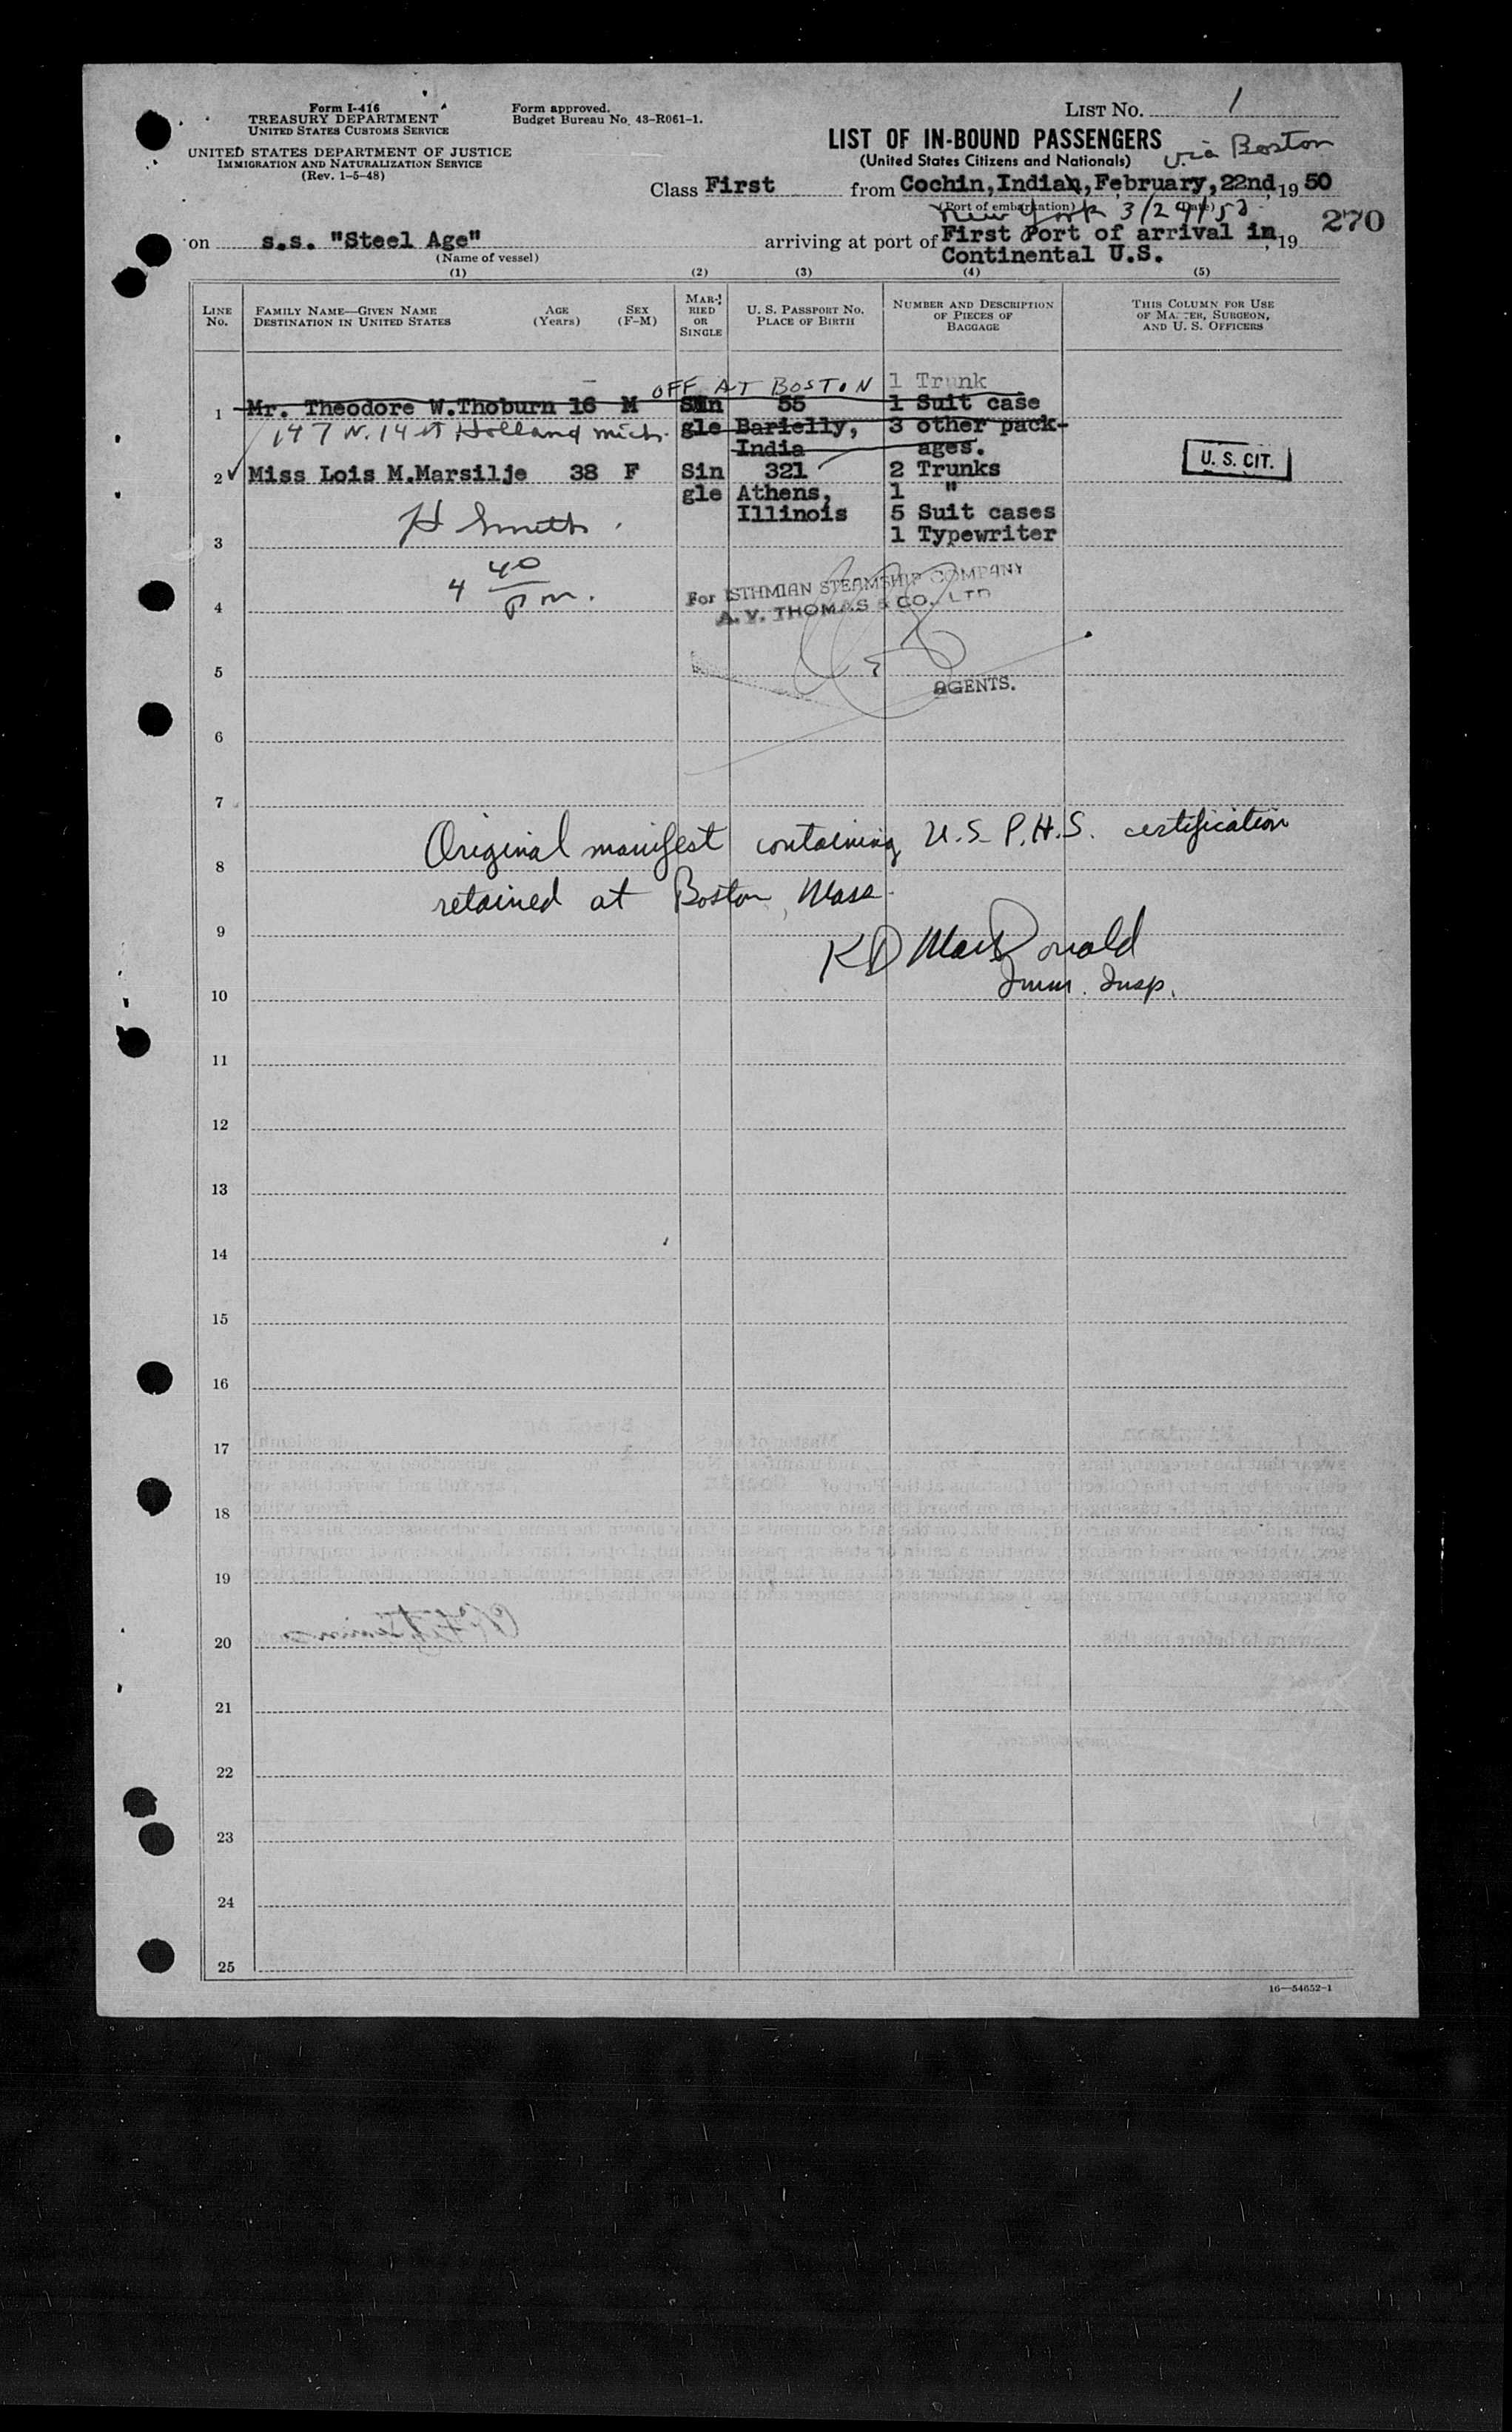 Form I-416
TREASURY DEPARTMENT
UNITED STATES CUSTOMS SERVICE
UNITED STATES DEPARTMENT OF JUSTICE
IMMIGRATION AND NATURALIZATION SERVICE
(Rev. 1-5-48)
Form approved.
Budget Bureau No. 43-R061-1.
LIST NO. 1
LIST OF IN-BOUND PASSENGERS
(United States Citizens and Nationals) via Boston
Class First from Cochin, India, February, 22nd, 19 50
(Port of embarkation) (Date)
New York 3/24/50
270
on s.s. "Steel Age" arriving at port of First Port of arrival in, 19
(Name of vessel) Continental U.S.
(1) (2) (3) (4) (5)
LINE No. FAMILY NAME—GIVEN NAME DESTINATION IN UNITED STATES AGE (Years) SEX (F-M) MARRIED OR SINGLE U. S. PASSPORT NO. PLACE OF BIRTH NUMBER AND DESCRIPTION OF PIECES OF BAGGAGE THIS COLUMN FOR USE OF MASTER, SURGEON, AND U. S. OFFICERS
OFF AT BOSTON 1 Trunk
1 Mr. Theodore W.Thoburn 16 M Sin 55 1 Suit case
147 N. 14 st Holland mich. gle Barielly, 3 other pack-
India ages.
2 Miss Lois M.Marsilje 38 F Sin 321 2 Trunks U. S. CIT.
gle Athens, 1 "
Illinois 5 Suit cases
H Smith
3 1 Typewriter
4 40 pm.
For ISTHMIAN STEAMSHIP COMPANY
4 A. V. THOMAS & CO., LTD
5
AGENTS.
6
7
Original manifest containing U.S. P.H.S. certification
8
retained at Boston, Mass.
9
KD MacDonald
Imm. Insp.
10
11
12
13
14
15
16
17
18
19
20
21
22
23
24
25
16—54652-1